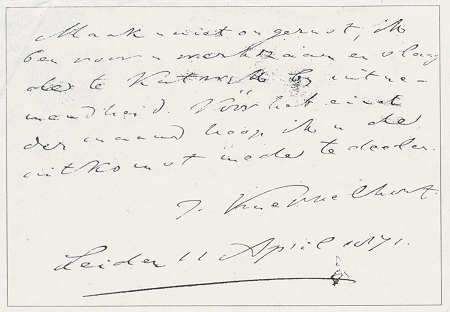 Maak u niet ongerust, ik
ben voor u werkzaam en slaag
der te Katwijk by uitne-
mendheid. Vóór het eind
der maand hoop ik u de
uitkomst mede te deelen.
J. Kneppelhout.
Leiden 11 April 1871.